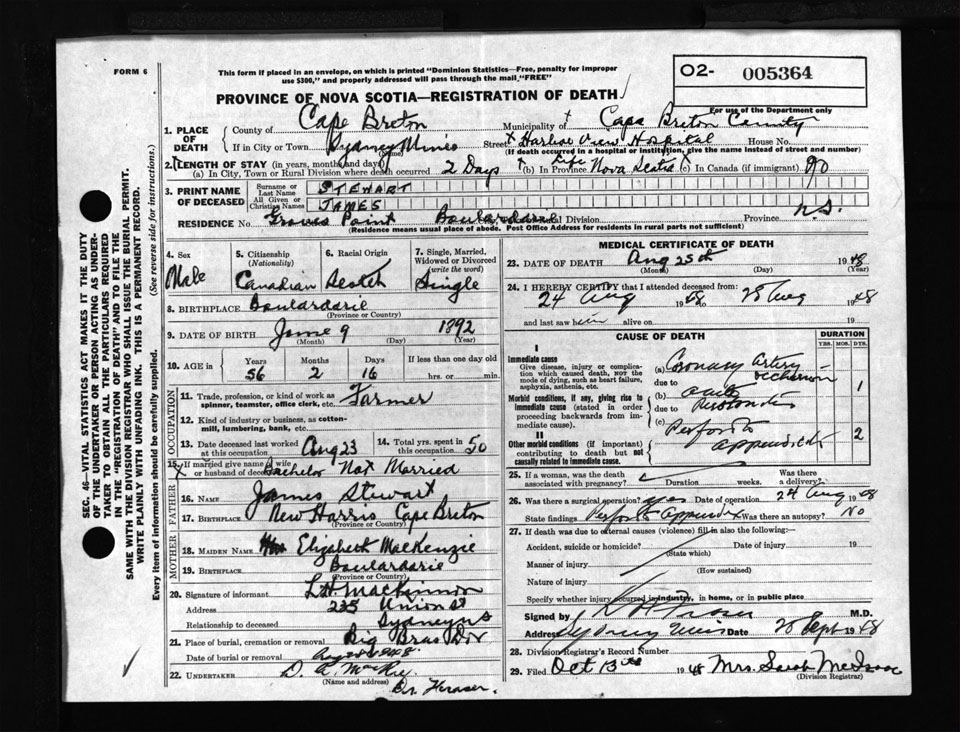 FORM 6
This form if placed in an envelope, on which is printed "Dominion Statistics—Free, penalty for improper
use $300," and properly addressed will pass through the mail "FREE"
O2- 005364
For use of the Department only
PROVINCE OF NOVA SCOTIA—REGISTRATION OF DEATH
1. PLACE OF DEATH
County of Cape Breton Municipality of Cape Breton County
If in City or Town Sydney Mines Street Harbor View Hospital House No.
(Name) (If death occurred in a hospital or institution, give the name instead of street and number)
2. LENGTH OF STAY (in years, months and days)
(a) In City, Town or Rural Division where death occurred 2 Days (b) In Province Life Nova Scotia (c) In Canada (if immigrant) no
3. PRINT NAME OF DECEASED
Surname or Last Name STEWART
All Given or Christian Names JAMES
RESIDENCE No. Groves Point Boulardarie Division Province N.S.
(Residence means usual place of abode. Post Office Address for residents in rural parts not sufficient)
4. Sex Male
5. Citizenship (Nationality) Canadian
6. Racial Origin Scotch
7. Single, Married, Widowed or Divorced (write the word) Single
8. BIRTHPLACE Boulardarie
(Province or Country)
9. DATE OF BIRTH June 9 1892
(Month) (Day) (Year)
10. AGE in Years 56 Months 2 Days 16 If less than one day old hrs. or min.
OCCUPATION
11. Trade, profession, or kind of work as spinner, teamster, office clerk, etc. Farmer
12. Kind of industry or business, as cotton-mill, lumbering, bank, etc.
13. Date deceased last worked at this occupation Aug 23
14. Total yrs. spent in this occupation 50
15. If married give name of wife or husband of deceased Bachelor Not Married
FATHER
16. NAME James Stewart
17. BIRTHPLACE New Harris Cape Breton
(Province or Country)
MOTHER
18. MAIDEN NAME Elizabeth MacKenzie
19. BIRTHPLACE Boulardarie
(Province or Country)
20. Signature of informant L. H. MacKinnon
Address 235 Union St
Relationship to deceased Sydney N S
21. Place of burial, cremation or removal Big Bras D'Or
Date of burial or removal Aug 28 1948
22. UNDERTAKER D. A. MacRae
(Name and address)
Dr. Fraser.
MEDICAL CERTIFICATE OF DEATH
23. DATE OF DEATH Aug 25th 1948
(Month) (Day) (Year)
24. I HEREBY CERTIFY that I attended deceased from:
24 Aug 1948 to 25 Aug 1948
and last saw him alive on 19
CAUSE OF DEATH DURATION
YRS. MOS. DYS.
I
Immediate cause
Give disease, injury or complication which caused death, not the mode of dying, such as heart failure, asphyxia, asthenia, etc.
(a) Coronary artery occlusion
due to
(b) acute Peritonitis 1
due to
Morbid conditions, if any, giving rise to immediate cause (stated in order proceeding backwards from immediate cause).
(c) Perforated appendix 2
II
Other morbid conditions (if important) contributing to death but not causally related to immediate cause.
25. If a woman, was the death associated with pregnancy? Duration weeks. Was there a delivery?
26. Was there a surgical operation? yes Date of operation 24 Aug 1948
State findings Perforated appendix Was there an autopsy? No
27. If death was due to external causes (violence) fill in also the following:—
Accident, suicide or homicide? Date of injury 19
(State which)
Manner of injury
(How sustained)
Nature of injury
Specify whether injury occurred in industry, in home, or in public place
Signed by Fraser M.D.
Address Sydney Mines Date 28 Sept 1948
28. Division Registrar's Record Number
29. Filed Oct 13th 1948 Mrs. Sarah McIsaac
(Division Registrar)
SEC. 46—VITAL STATISTICS ACT MAKES IT THE DUTY
OF THE UNDERTAKER OR PERSON ACTING AS UNDER-
TAKER TO OBTAIN ALL THE PARTICULARS REQUIRED
IN THE "REGISTRATION OF DEATH" AND TO FILE THE
SAME WITH THE DIVISION REGISTRAR WHO SHALL ISSUE THE BURIAL PERMIT.
WRITE PLAINLY WITH UNFADING INK. THIS IS A PERMANENT RECORD.
(See reverse side for instructions.)
Every item of information should be carefully supplied.